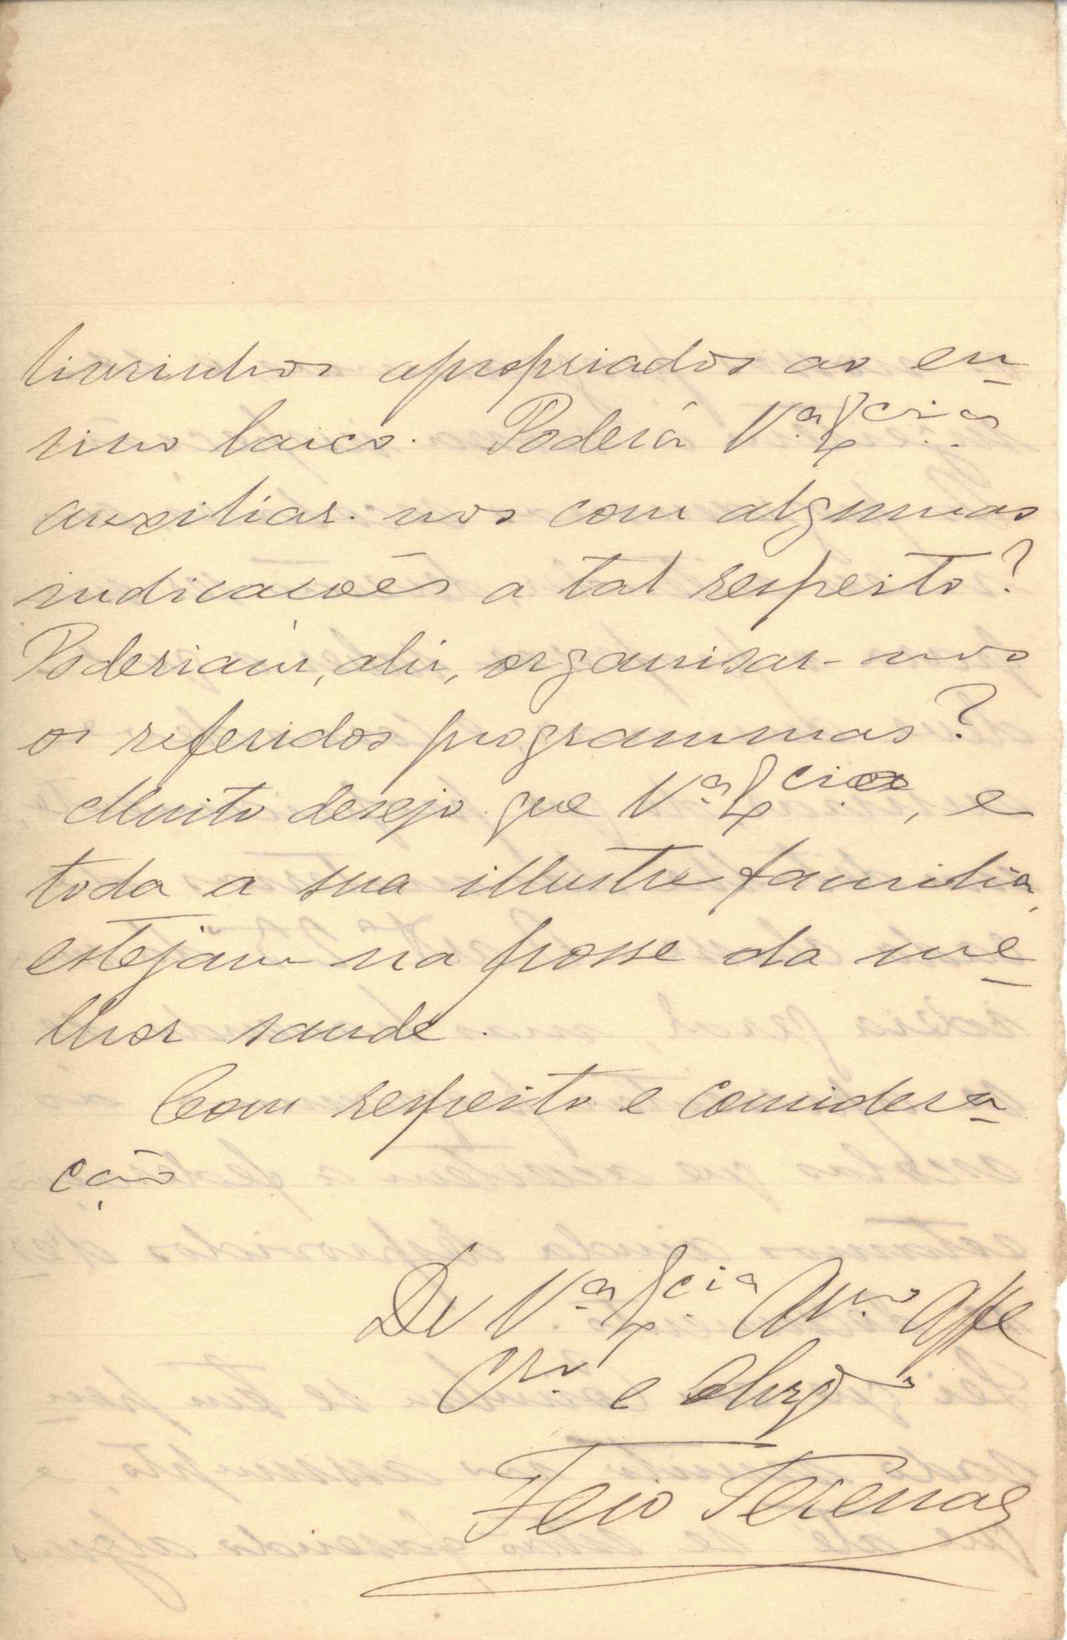 livrinhos apropriados ao en-
sino laico. Poderá V.ª Ex.cia
auxiliar-nos com algumas
indicacoẽs a tal respeito?
Poderiam, ahi, organisar-nos
os referidos programmas?
Muito desejo que V.ª Ex.cia, e
toda a sua illustre familia,
estejam na posse da me-
lhor saude.
Com respeito e considera-
ção
De V.ª Ex.cia Am.o Affe
Cr.o e Obrg.o
Feio Terenas